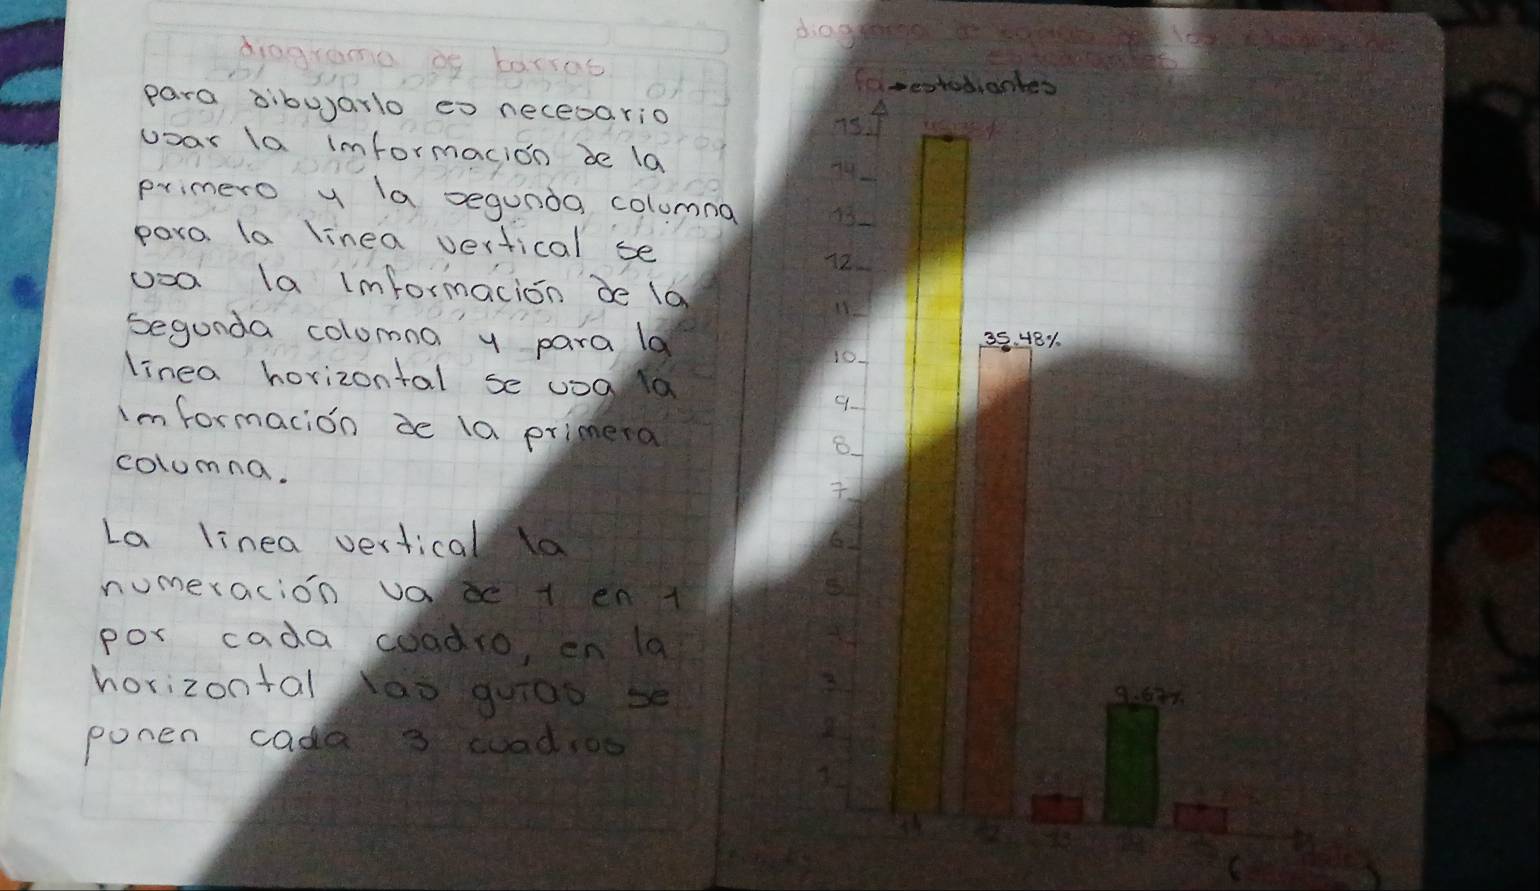 diagrama de barras
para dibujarlo es necesario
usar la imformación de la
primero y la segunda columna
para la linea vertical se
usa la imformación de la
segunda columna y para la
linea horizontal se usa la
imformación de la primera
columna.
La linea vertical la
numeración va de 1 en 1
por cada cuadro, en la
horizontal las guias se
ponen cada 3 cuadros
diagrama de
fa→estudiantes
15
14
13
12
11
10
35.48%
9
8
7
6
5
3
2
1
9.67%
11
12
13